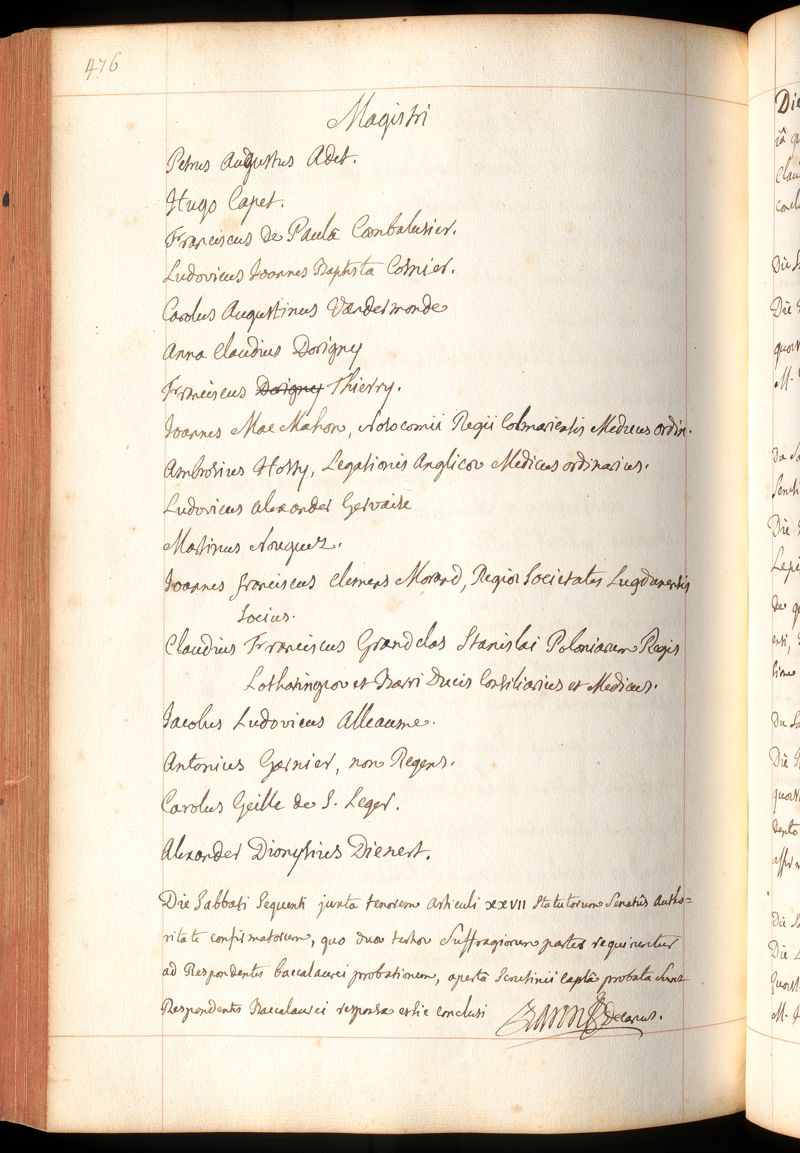 476
Magistri
Petrus Augustus Adet.
Hugo Capet.
Franciscus De Paulâ Combalusier.
Ludovicus Ioannes Baptista Cosnier.
Carolus Augustinus Vandermonde
Anna Claudius Dorigny
Franciscus Dorigny Thierry.
Ioannes Mac Mahon, Nosocomii Regii Colmariensis Medicus ordin.
Ambrosius Hosty, Legationis Anglicæ Medicus ordinarius.
Ludovicus Alexander Gervaise
Martinus Nouguez.
Ioannes franciscus Clemens Morand, Regiæ Societatis Lugdunensis
Socius.
Claudius Franciscus Grandclas Stanislai Poloniarum Regis
Lotharingiæ et Barri Ducis Consiliarius et Medicus.
Iacobus Ludovicus Alleaume.
Antonius Garnier, non Regens.
Carolus Geille de S. Leger.
Alexander Dionysius Dienert.
Die Sabbati Sequenti juxta tenorem articuli XXVII Statutorum Senatûs Autho=
ritate confirmatorum, quo duæ tertiæ Suffragiorum partes requiruntur
ad Respondentis baccalaurei probationem, apertâ Scrutinii capsâ probata sunt
Respondentis Baccalaurei responsa et sic conclusi
Decanus.
Die